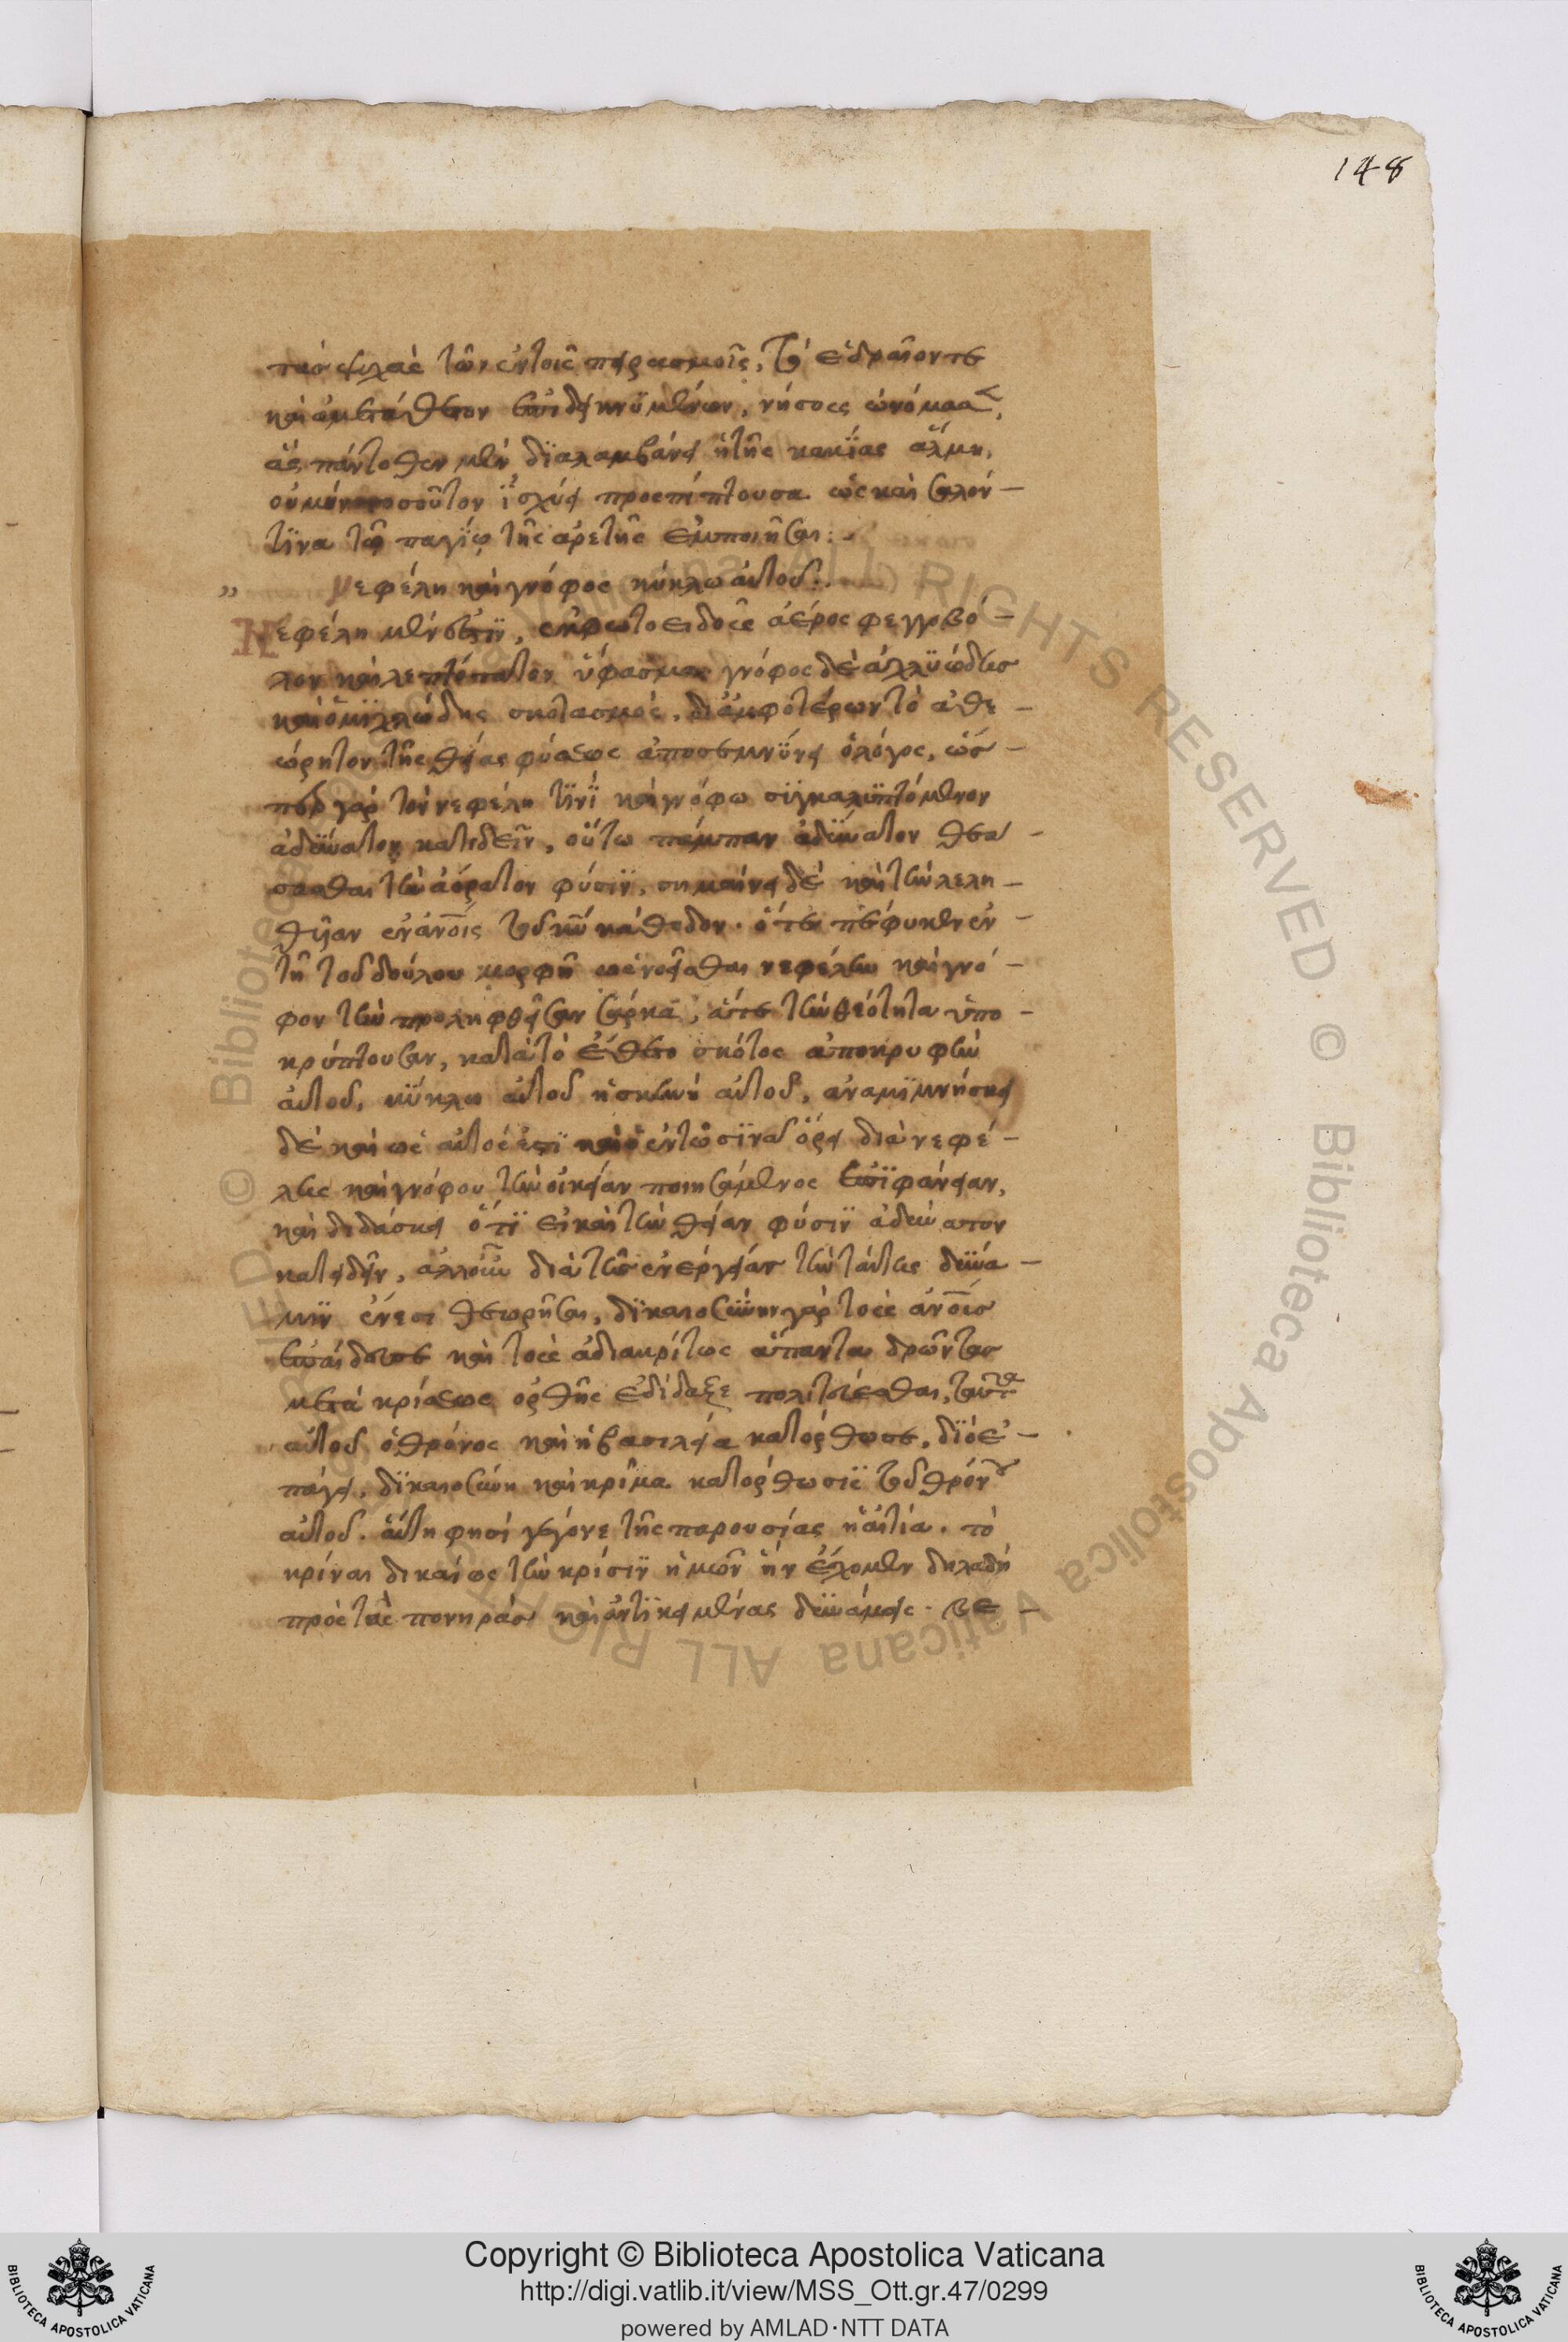 148
τὰς ψυχὰς τῶν ἐν τοῖς πειρασμοῖς, τὸ ἑδραῖόν τε
καὶ ἀμετάθετον ἐπιδεικνυμένων, νήσους ὠνόμασ
ἃς πάντοθεν μὲν διαλαμβάνει ἡ τῆς κακίας ἅλμη,
οὐ μὴν τοσοῦτον ἰσχύει προσπίπτουσα ὡς καὶ σάλον –
τινα τῷ παγίῳ τῆς ἀρετῆς ἐμποιῆσαι:
„ Νεφέλη καὶ γνόφος κύκλω αὐτοῦ:
Νεφέλη μὲν ἐστιν, ἐκ φωτοειδοῦς ἀέρος φεγγοβό –
λον καὶ λεπτότατον ὕφασμα· γνόφος δὲ ἀχλυώδης
καὶ ὁμιχλώδης σκοτασμός. δι' ἀμφοτέρων τὸ ἀθε –
ώρητον τῆς θείας φύσεως ἀποσεμνύνει ὁ λόγος, ὥσ –
περ γὰρ τὸν νεφέλη τινὶ καὶ γνόφω συγκαλυπτόμενον
ἀδύνατον κατιδεῖν, οὕτω πάμπαν ἀδύνατον θεά –
σασθαι τὴν ἀόρατον φύσιν. σημαίνει δὲ καὶ τὴν λελη –
θυῖαν ἐν ἀνοις τοῦ κυ κάθοδον. ὅτε πέφυκεν ἐν –
τῇ τοῦ δούλου μορφῇ ὡς νοεῖσθαι νεφέλην καὶ γνό –
φον τὴν προσληφθεῖσαν σάρκα, ἅτε τὴν θεότητα ὑπο –
κρύπτουσαν, κατὰ τὸ ἔθετο σκότος ἀποκρυφὴν
αὐτοῦ, κύκλω αὐτοῦ ἡ σκηνὴ αὐτοῦ, ἀναμιμνήσκει
δὲ καὶ ὡς αὐτός ἐστι καὶ ὁ ἐν τῷ σινᾶ ὄρει διὰ νεφέ –
λης καὶ γνόφου τὴν οἰκείαν ποιησάμενος ἐπιφάνειαν,
καὶ διδάσκει ὅτι εἰ καὶ τὴν θείαν φύσιν ἀδύνατον
κατειδεῖν, ἀλλ' οὖν διὰ τῆς ἐνεργείας τὴν ταύτης δύνα –
μιν ἔνεστι θεωρῆσαι, δικαιοσύνην γὰρ τοὺς ἀνοις
καὶ τοὺς ἀδιακρίτως ἅπαντα δρῶντας
μετὰ κρίσεως ὀρθῆς ἐδίδαξε πολιτεύεσθαι,
αὐτοῦ ὁ θρόνος καὶ ἡ βασιλεία κατόρθωσε, διὸ ἐ –
πάγει, δικαιοσύνη καὶ κρῖμα κατόρθωσις τοῦ θρόνου
αὐτοῦ. αὕτη φησὶ γέγονε τῆς παρουσίας ἡ αἰτία. τὸ
κρῖναι δικαίως τὴν κρίσιν ἡμῶν ἣν ἔχομεν δηλαδὴ
πρὸς τὰς πονηρὰς καὶ ἀντικειμένας δυνάμεις. βε –
Copyright © Biblioteca Apostolica Vaticana
http://digi.vatlib.it/view/MSS_Ott.gr.47/0299
powered by AMLAD·NTT DATA
BIBLIOTECA APOSTOLICA VATICANA
BIBLIOTECA APOSTOLICA VATICANA